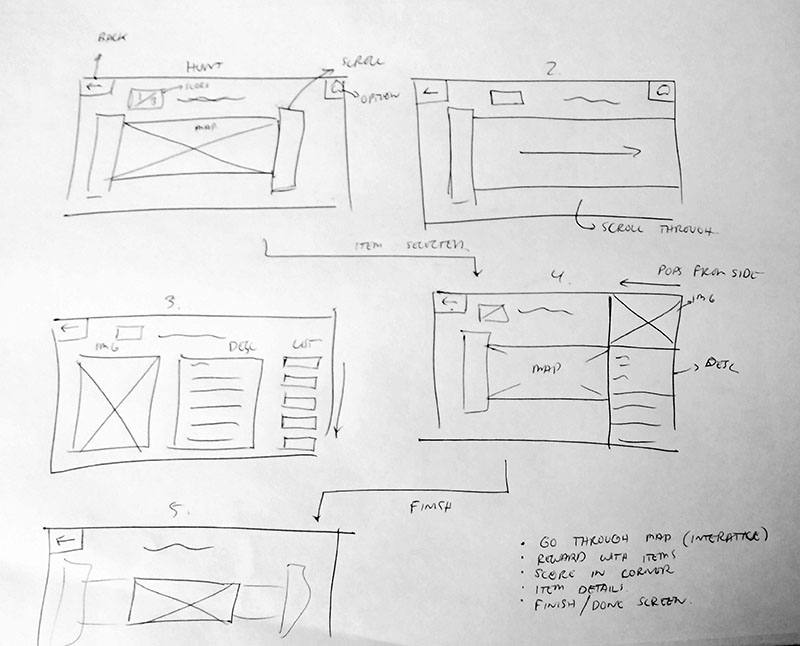 BACK
HUNT
SCROLL
SCORE
OPTION
MAP
2.
SCROLL THROUGH
ITEM SELECTED
3.
IMG
DESC
LIST
4.
POPS FROM SIDE
IMG
MAP
DESC
FINISH
5.
• GO THROUGH MAP (INTERATICE)
• REWARD WITH ITEMS
• SCORE IN CORNER
• ITEM DETAILS
• FINISH/DONE SCREEN.